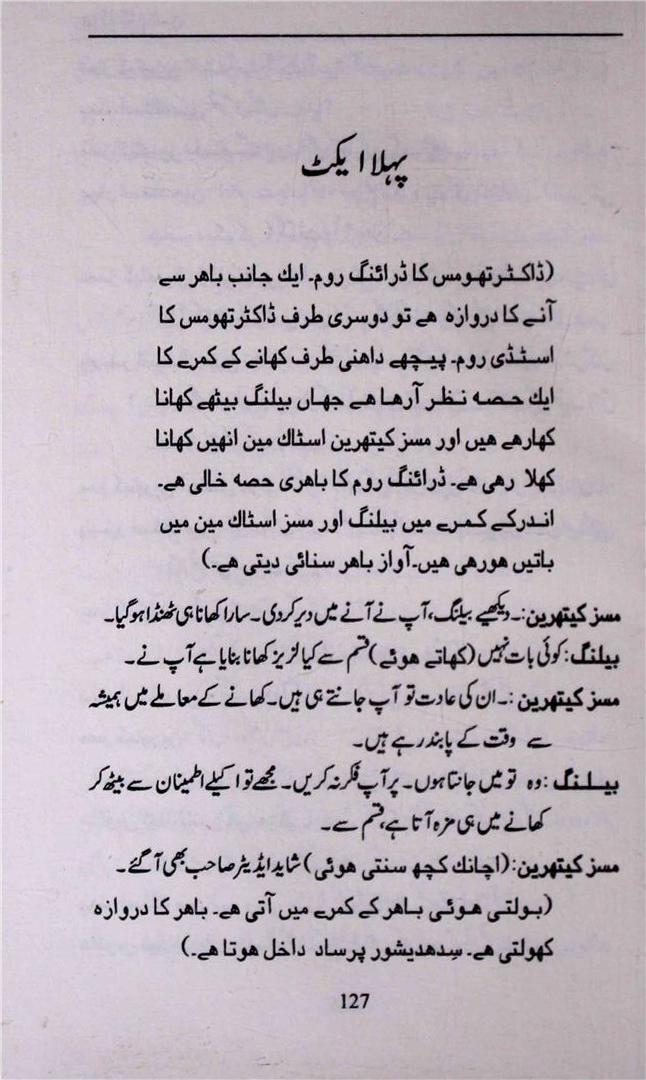 پہلا ایکٹ
(ڈاکٹرتھومس کا ڈرائنگ روم۔ ایك جانب باھر سے
آنے کا دروازہ ھے تو دوسری طرف ڈاکٹرتھومس کا
اسٹڈی روم۔ پیچھے داھنی طرف کھانے کے کمرے کا
ایك حصہ نظر آرھا ھے جھاں بیلنگ بیٹھے کھانا
کھارھے ھیں اور مسز کیتھرین اسٹاك مین انھیں کھانا
کھلا رھی ھے۔ ڈرائنگ روم کا باھری حصہ خالی ھے۔
اندرکے کمرے میں بیلنگ اور مسز اسٹاك مین میں
باتیں ھورھی ھیں۔آواز باھر سنائی دیتی ھے۔)
مسز کیتھرین:۔ دیکھیے بیلنگ، آپ نے آنے میں دیر کردی۔ سارا کھانا ہی ٹھنڈا ہوگیا۔
بیلنگ: کوئی بات نہیں (کھاتے ھوئے) قسم سے کیا لزیز کھانا بنایا ہے آپ نے۔
مسز کیتھرین :۔ ان کی عادت تو آپ جانتے ہی ہیں۔ کھانے کے معاملے میں ہمیشہ
سے وقت کے پابند رہے ہیں۔
بیلنگ : وہ تو میں جانتا ہوں۔ پر آپ فکر نہ کریں۔ مجھے تو اکیلے اطمینان سے بیٹھ کر
کھانے میں ہی مزہ آتا ہے، قسم سے۔
مسز کیتھرین: (اچانك کچھ سنتی ھوئی) شاید ایڈیٹر صاحب بھی آگئے۔
(بولتی ھوئی باھر کے کمرے میں آتی ھے۔ باھر کا دروازہ
کھولتی ھے۔ سِدھدیشور پرساد داخل ھوتا ھے۔)
127